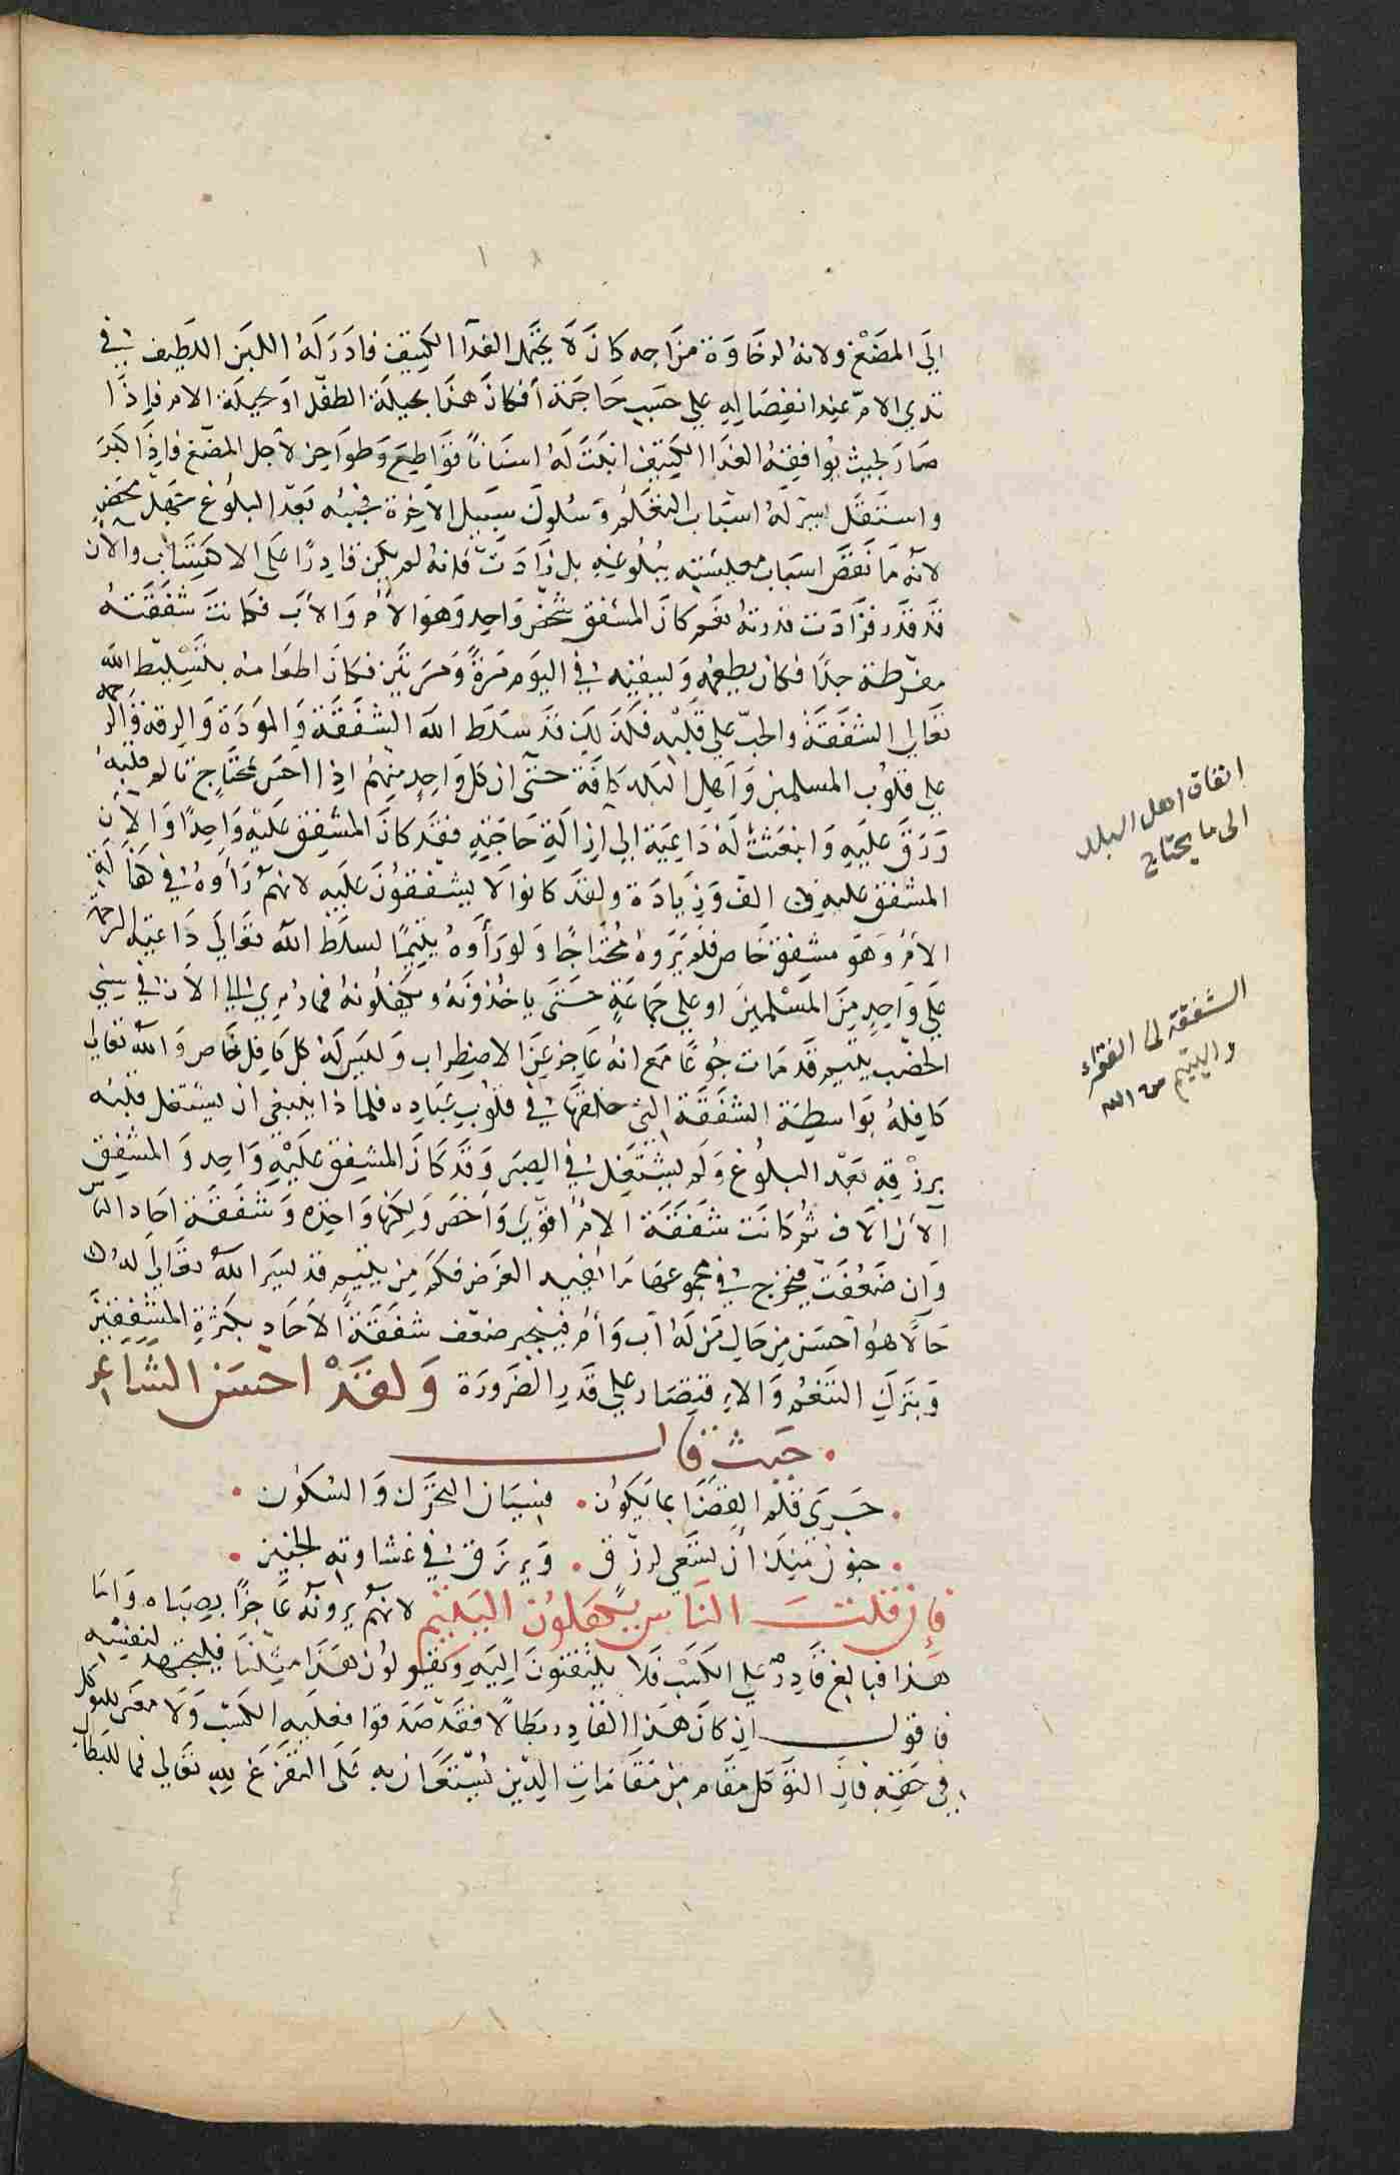 الى المضغ ولانه لرخاوة مزاجه كان لا يحتمل الغدآ الكثيف فادر له اللبن اللطيف في
ثدي الام عند انفصاله على حسب حاجته أفكان هذا بحيلة الطفل او بحيلة الام فاذا
صار بحيث يوافقه الغذا الكثيف انبت له اسناناً قواطع وطواحن لاجل المضغ فاذا كبر
واستقل يسر له اسباب التعلم وسلوك سبيل الآخرة فجبنه بعد البلوغ جهل محض
لانه ما نقص اسباب معيشته ببلوغه بل زادت فانه لم يكن قادرًا على الاكتساب والآن
قد قدر فزادت قدرته نعم كان المشفق شخص واحد وهو الأم والأب فكانت شفقته
مفرطة جدًا فكان يطعمه ويسقيه في اليوم مرةً ومرتين فكان اطعامه بتسليط الله
تعالى الشفقة والحب على قلبه فكذلك قد سلط الله الشفقة والمودة والرقة والرحمه
على قلوب المسلمين واهل البلد كافة حتى ان كل واحد منهم اذا احس بمحتاج تالم قلبه
ورق عليه وانبعثت له داعية الى ازالة حاجته فقد كان المشفق عليه واحدًا والآن
المشفق عليه الف وزيادة ولقد كانوا لا يشفقون عليه لانهم رأوه في كفالة
الأم وهو مشفق خاص فلم يروه محتاجًا ولو رأوه يتيمًا لسلط الله تعالى داعية الرحمة
على واحد من المسلمين او على جماعة حتى ياخذونه ويكفلونه فما رئى الى الآن في سنى
الخصب يتيم قد مات جوعًا مع انه عاجز عن الاضطراب وليس له كافل خاص والله تعالى
كافله بواسطة الشفقة التي خلقها في قلوب عباده فلماذا ينبغي ان يشتغل قلبه
برزقه بعد البلوغ ولم يشتغل في الصبى وقد كان المشفق عليه واحد والمشفق
الآن الاف ثم كانت شفقة الام أقوى وأخص ولكنها واحدة وشفقة احاد الناس
وان ضعفت فيخرج في مجموعها ما يفيد الغرض فكم من يتيم قد يسر الله تعالى له
حالًا هو احسن من حال من له اب وأم فينجبر ضعف شفقة الاحاد بكثرة المشفقين
وبترك التنعم والاقتصار على قدر الضرورة ولقد احسن الشاعر
حيث قال
جرى قلم القضا بما يكون . فسيان التحرك والسكون
جنون منك ان تسعى لرزق . ويرزق في غشاوته الجنين
فان قلت الناس يكفلون اليتيم لانهم يرونه عاجزًا بصباه واما
هذا فبالغ قادر على الكسب فلا يلتفتون اليه ويقولون هذا مثلنا فليجتهد لنفسه
فاقول ان كان هذا القادر بطالًا فقد صدقوا فعليه الكسب ولا معنى للتوكل
في حقه فان التوكل مقام من مقامات الدين يستعان به على التفرغ لله تعالى فما للبطال
اتفاق اهل البلد
الى ما يحتاج
الشفقة الى الفقراء
واليتيم من الله